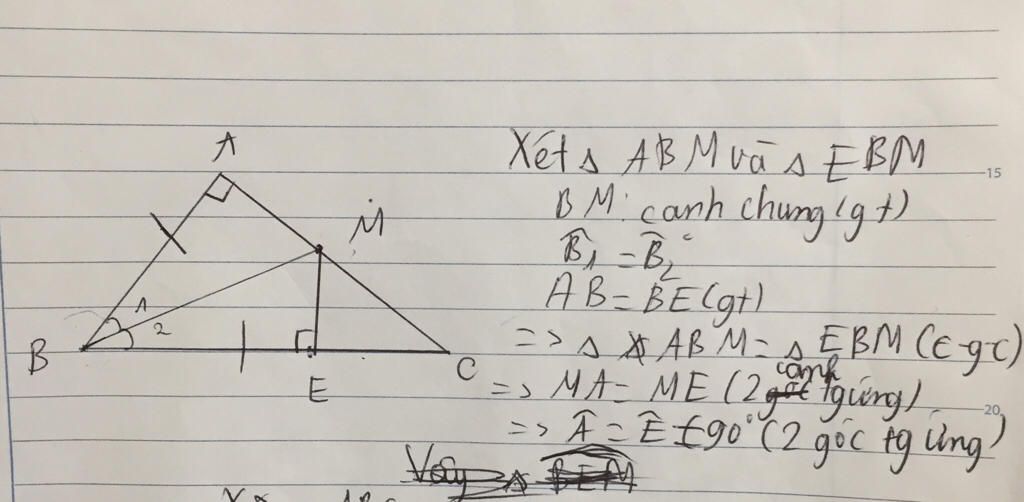 A
M
1
2
B
E
C
Xét △ ABM và △ EBM
15
BM: cạnh chung (gt)
B̂1 = B̂2
AB = BE (gt)
=> △ ABM = △ EBM (c-g-c)
=> MA = ME (2 cạnh tg ứng)
20
=> Â = Ê = 90° (2 góc tg ứng)
Vậy △ BEM